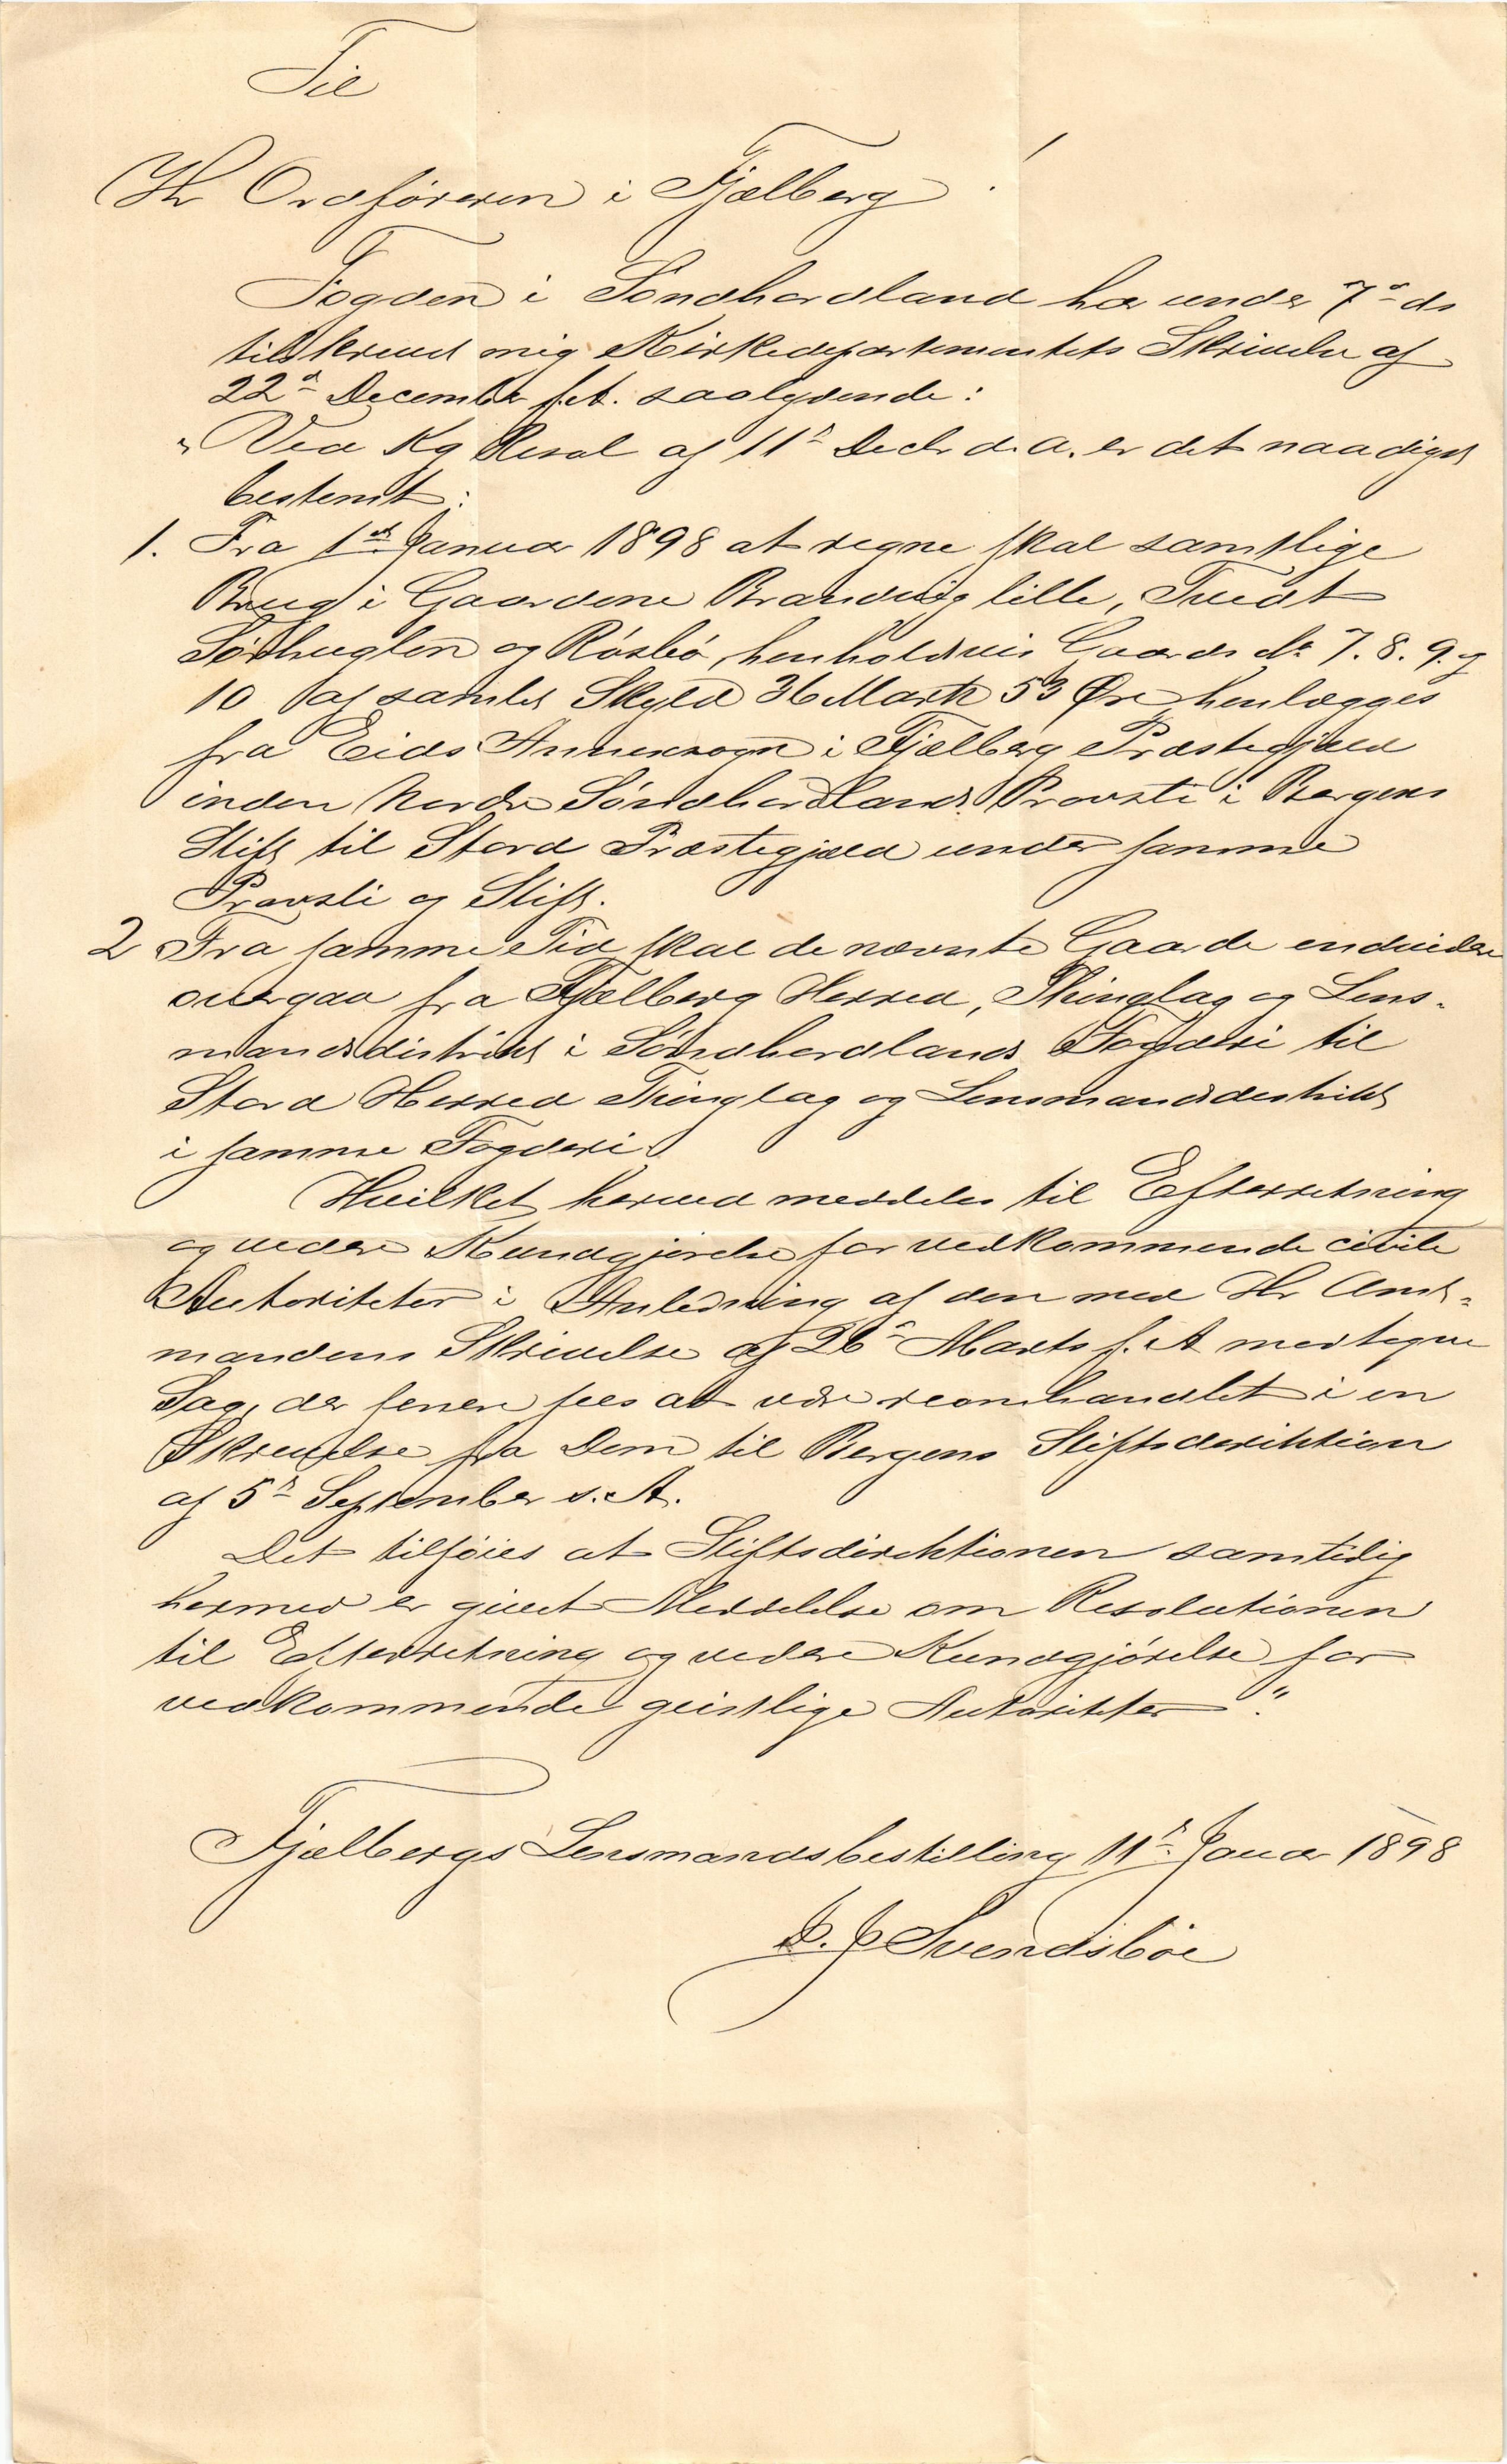 Til
Hr Ordføreren i Fjælberg!
Fogden i Søndhordland har under 7de ds
tilskrevet mig Kirkedepartementets Skrivelse af
22de December f.A. saalydende:
"Ved Kg Resol af 11te Decbr d.A. er det naadigst
bestemt:
1. Fra 1ste Januar 1898 at regne skal samtlige
Brug i Gaardene Brandvig lille, Tveit
Sørhuglen og Røsbø, henholdsvis Gaards No 7. 8. 9. og
10 af samlet Skyld 36 Mark 53 Øre henlægges
fra Eids Annexsogn i Fjælberg Præstegjæld
inden Nordre Søndhordlands Provsti i Bergens
Stift til Stord Præstegjæld under samme
Provsti og Stift.
2 Fra samme Tid skal de nævnte Gaarde endvidere
overgaa fra Fjælberg Herred, Thinglag og Lens-
mandsdistrikt i Søndhordlands Fogderi til
Stord Herred Thinglag og Lensmandsdistrikt
i samme Fogderi.
Hvilket herved meddeles til Efterretning
og videre Kundgjørelse for vedkommende civile
Autoriteter i Anledning af den med Hr Amt-
mandens Skrivelse af 26de Marts f. A modtagne
Sag, der senere sees at være reomhandlet i en
Skrivelse fra Dem til Bergens Stiftsdirektion
af 5te September s. A.
Det tilføies at Stiftsdirektionen samtidig
hermed er givet Meddelelse om Resolutionen
til Efterretning og videre Kundgjørelse for
vedkommende geistlige Autoriteter".
Fjælbergs Lensmandsbestilling 11te Januar 1898
J. Svendsbøe